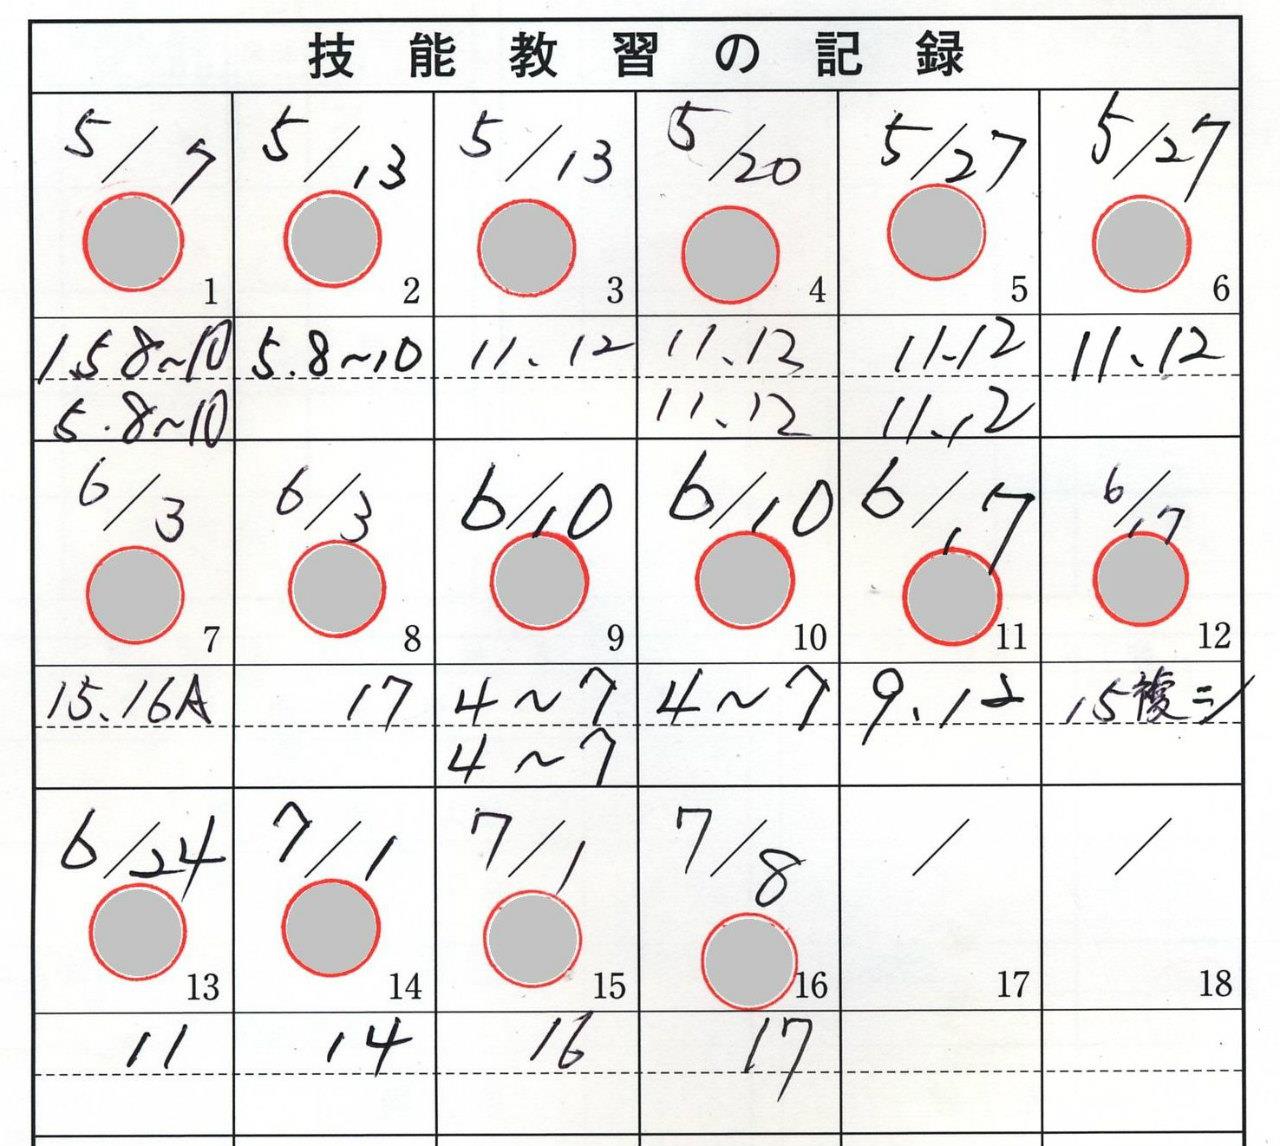 技能教習の記録
5/7 5/13 5/13 5/20 5/27 5/27
1 2 3 4 5 6
1.5 8~10 5.8~10 11、12 11、12 11.12 11、12
5.8~10 11、12 11、12
6/3 6/3 6/10 6/10 6/17 6/17
7 8 9 10 11 12
15.16A 17 4~7 4~7 9、12 15複ニ
4~7
6/24 7/1 7/1 7/8 / /
13 14 15 16 17 18
11 14 16 17